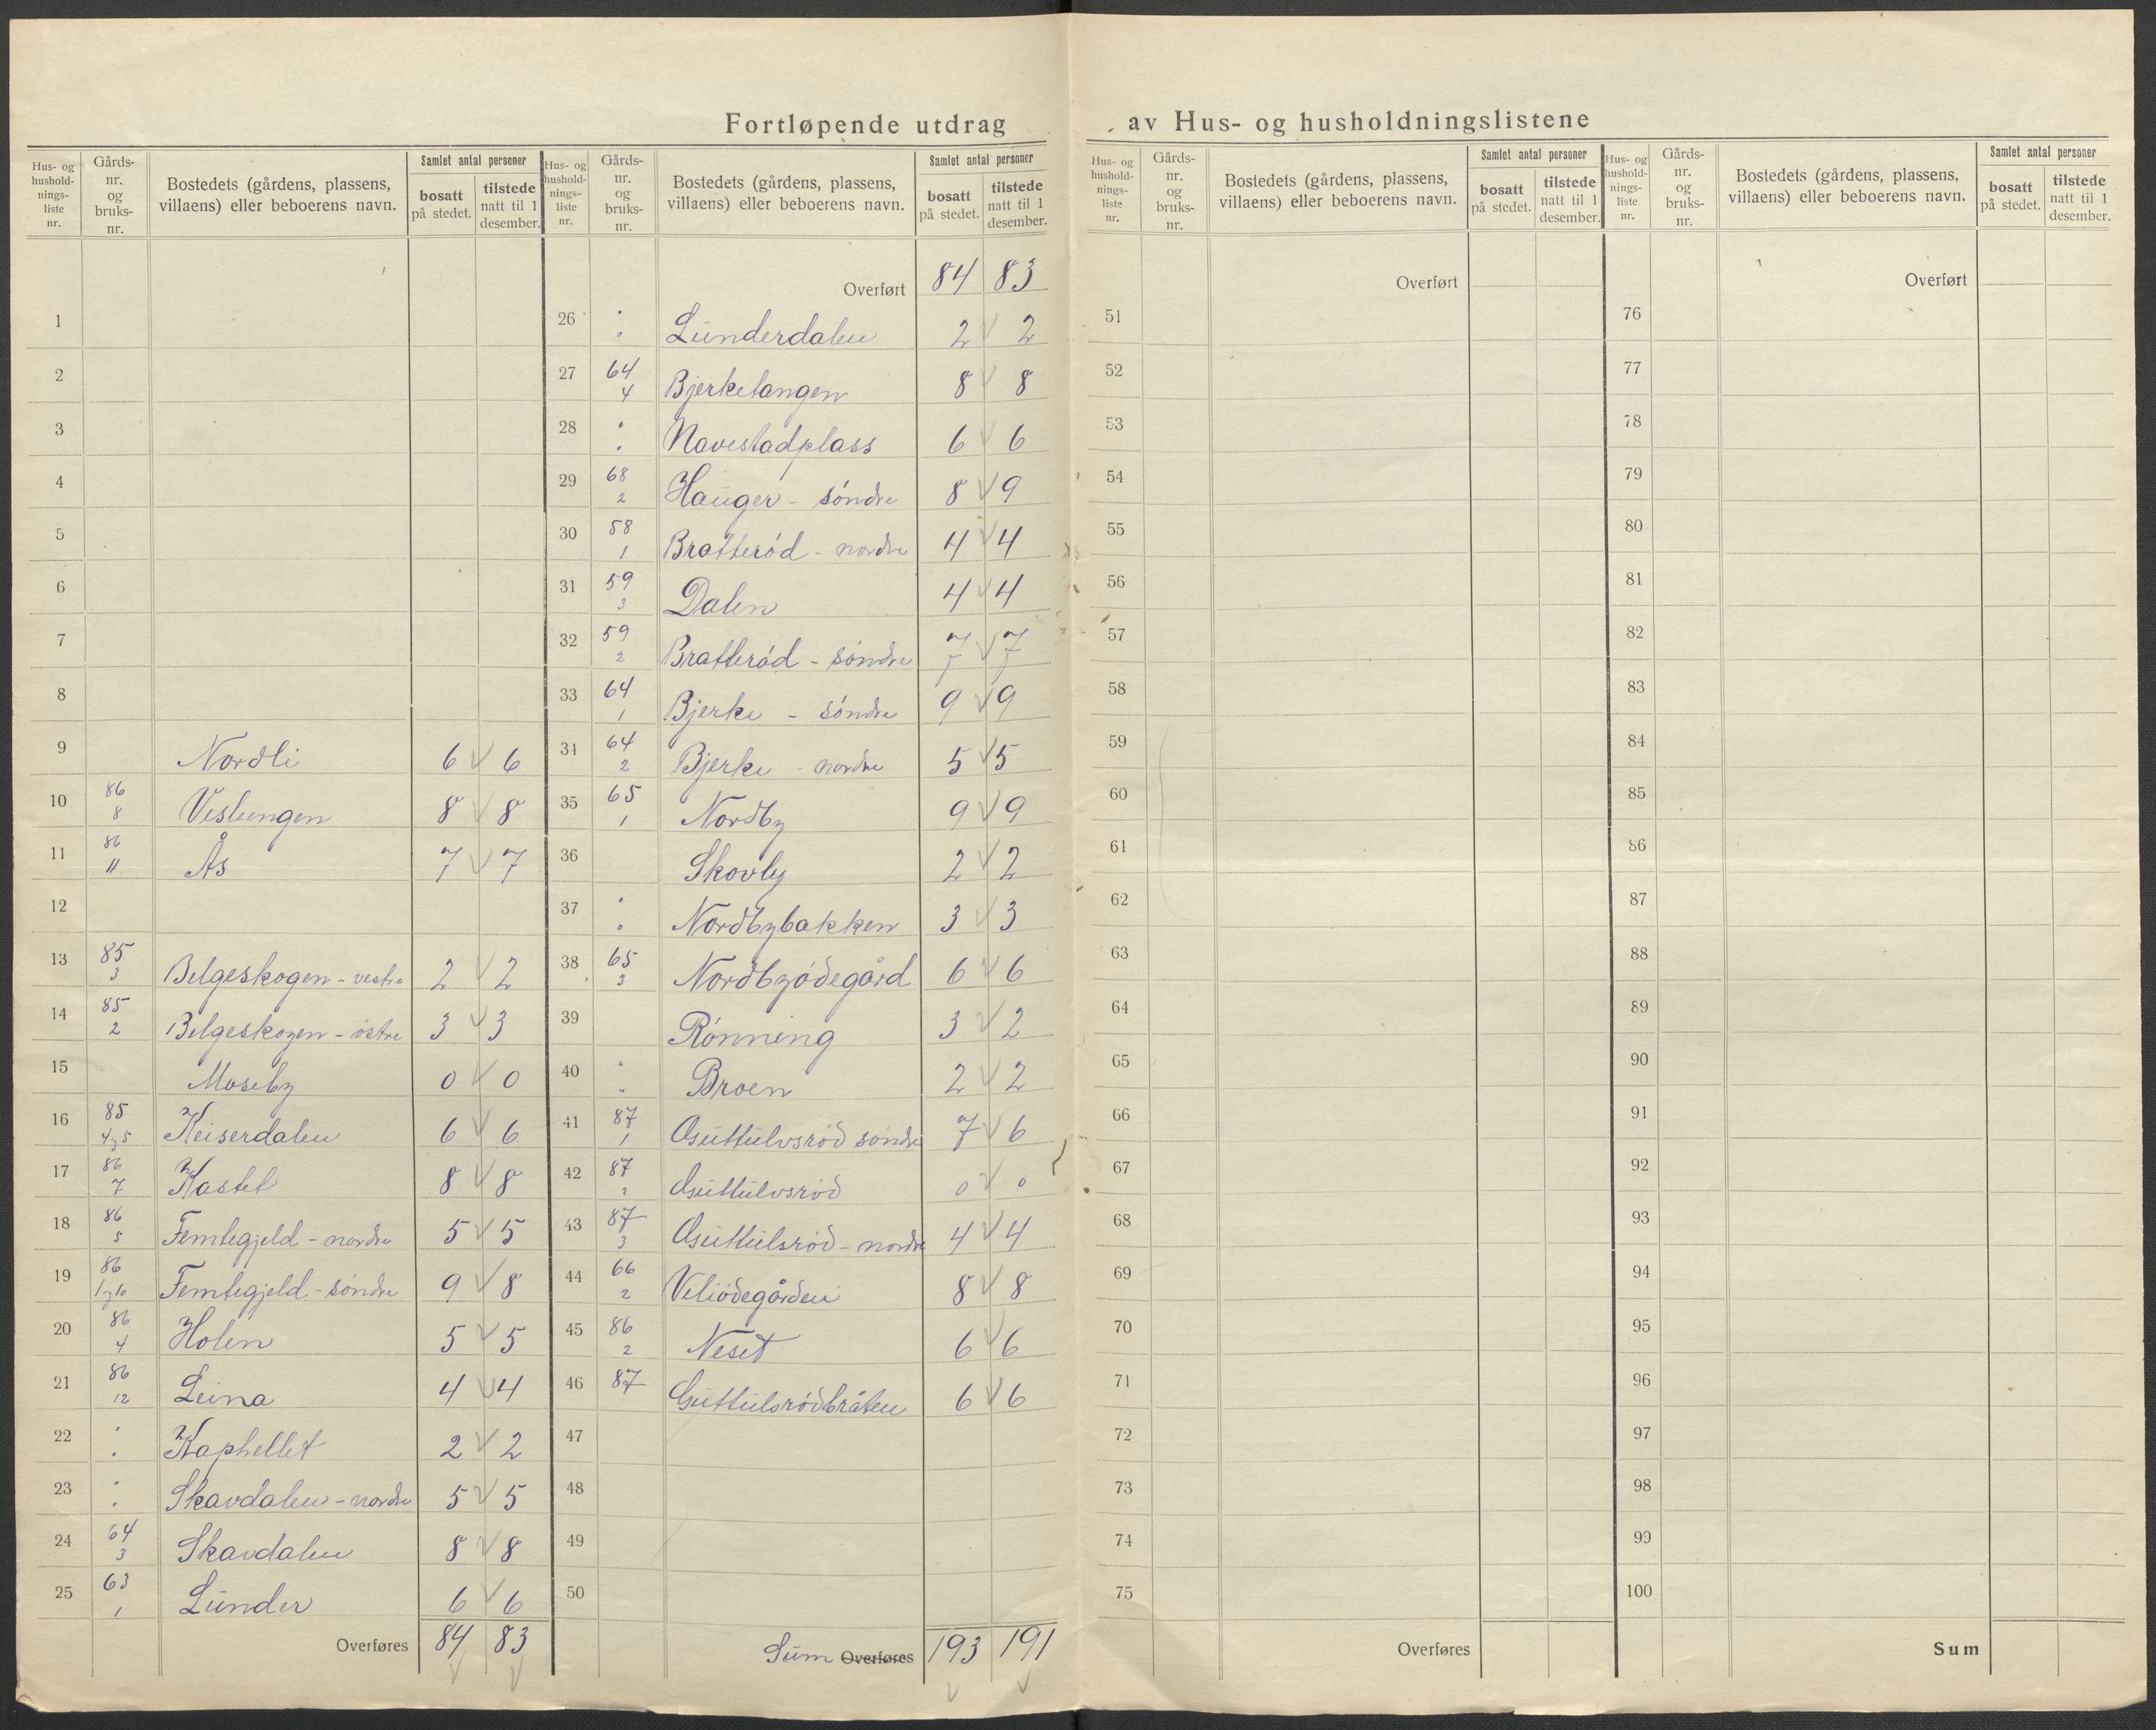 Fortløpende utdrag av Hus- og husholdningslistene
Hus- og hushold-nings-liste nr. Gårds-nr. og bruks-nr. Bostedets (gårdens, plassens, villaens) eller beboerens navn. Samlet antal personer bosatt på stedet. tilstede natt til 1 desember.
1
2
3
4
5
6
7
8
9 Nordli 6 6
10 86 8 Veslengen 8 8
11 86 11 Ås 7 7
12
13 85 3 Belgeskogen - vestre 2 2
14 85 2 Belgeskogen - östre 3 3
15 Moseby 0 0
16 85 4 5 Keiserdalen 6 6
17 86 7 Kastet 8 8
18 86 5 Femtegjeld - nordre 5 5
19 86 Femtegjeld - söndre 9 8
20 86 4 Holen 5 5
21 86 12 Leina 4 4
22 " " Kaphellet 2 2
23 " " Skavdalen - nordre 5 5
24 64 3 Skavdalen 8 8
25 63 1 Lunder 6 6
Overføres 84 83
Hus- og hushold-nings-liste nr. Gårds-nr. og bruks-nr. Bostedets (gårdens, plassens, villaens) eller beboerens navn. Samlet antal personer bosatt på stedet. tilstede natt til 1 desember.
Overført 84 83
26 " " Lunderdalen 2 2
27 64 4 Bjerketangen 8 8
28 " " Navestadplass 6 6
29 68 2 Hauger - söndre 8 9
30 58 1 Bratteród - nordre 4 4
31 59 3 Dalen 4 4
32 59 2 Bratteród - söndre 7 7
33 64 1 Bjerke - söndre 9 9
34 64 2 Bjerke - nordre 5 5
35 65 1 Nordby 9 9
36 Skovly 2 2
37 " " Nordbybakken 3 3
38 65 3 Nordbyódegård 6 6
39 Rónning 3 2
40 " " Broen 2 2
41 87 1 Guttulvsród söndre 7 6
42 87 2 Guttulvsród 0 0
43 87 3 Guttulsród - nordre 4 4
44 66 2 Veliódegården 8 8
45 86 2 Neset 6 6
46 87 Guttulsródbråten 6 6
47
48
49
50
Sum Overføres 193 191
Hus- og hushold-nings-liste nr. Gårds-nr. og bruks-nr. Bostedets (gårdens, plassens, villaens) eller beboerens navn. Samlet antal personer bosatt på stedet. tilstede natt til 1 desember.
Overført
51
52
53
54
55
56
57
58
59
60
61
62
63
64
65
66
67
68
69
70
71
72
73
74
75
Overføres
Hus- og hushold-nings-liste nr. Gårds-nr. og bruks-nr. Bostedets (gårdens, plassens, villaens) eller beboerens navn. Samlet antal personer bosatt på stedet. tilstede natt til 1 desember.
Overført
76
77
78
79
80
81
82
83
84
85
86
87
88
89
90
91
92
93
94
95
96
97
98
99
100
Sum